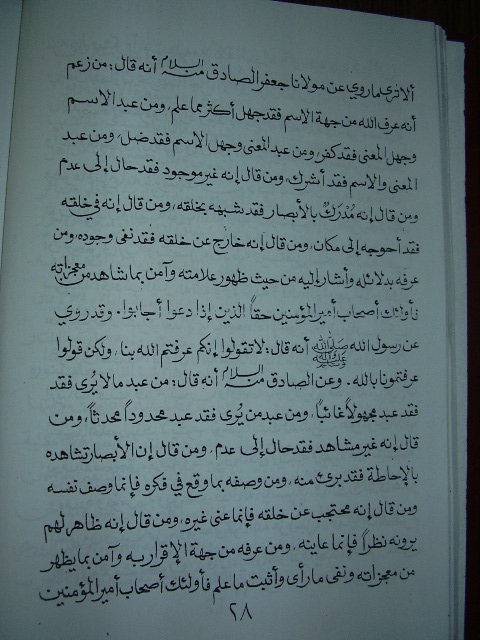 ألا ترى لما روي عن مولانا جعفر الصادق منه السلام أنه قال: من زعم
أنه عرف الله من جهة الاسم فقد جهل أكثر مما علم، ومن عبد الاسم
وجهل المعنى فقد كفر، ومن عبد المعنى وجهل الاسم فقد ضل، ومن عبد
المعنى والاسم فقد أشرك، ومن قال إنه غير موجود فقد حال إلى عدم
ومن قال إنه مُدْرَكٌ بالأبصار فقد شبهه بخلقه، ومن قال إنه في خلقه
فقد أحوجه إلى مكان، ومن قال إنه خارج عن خلقه فقد نفى وجوده، ومن
عرفه بدلائله وأشار إليه من حيث ظهور علامته وآمن بما شاهد من معجزاته
فأولئك أصحاب أمير المؤمنين حقاً الذين إذا دعوا أجابوا. وقد روي
عن رسول الله صلى الله عليه وسلم أنه قال: لا تقولوا إنكم عرفتم الله بنا، ولكن قولوا
عرفتمونا بالله. وعن الصادق منه السلام أنه قال: من عبد ما لا يُرى فقد
فقد عبد مجهولاً غائباً، ومن عبد من يُرى فقد عبد محدوداً محدثاً، ومن
قال إنه غير مشاهد فقد حال إلى عدم، ومن قال إن الأبصار تشاهده
بالإحاطة فقد برئ منه، ومن وصفه بما وقع في فكره فإنما وصف نفسه
ومن قال إنه محتجب عن خلقه فإنما عنى غيره، ومن قال إنه ظاهر لهم
يرونه نظراً فإنما عاينه، ومن عرفه من جهة الإقرار به وآمن بما يظهر
من معجزاته ونفى ما رأى وأثبت ما علم فأولئك أصحاب أمير المؤمنين
٢٨